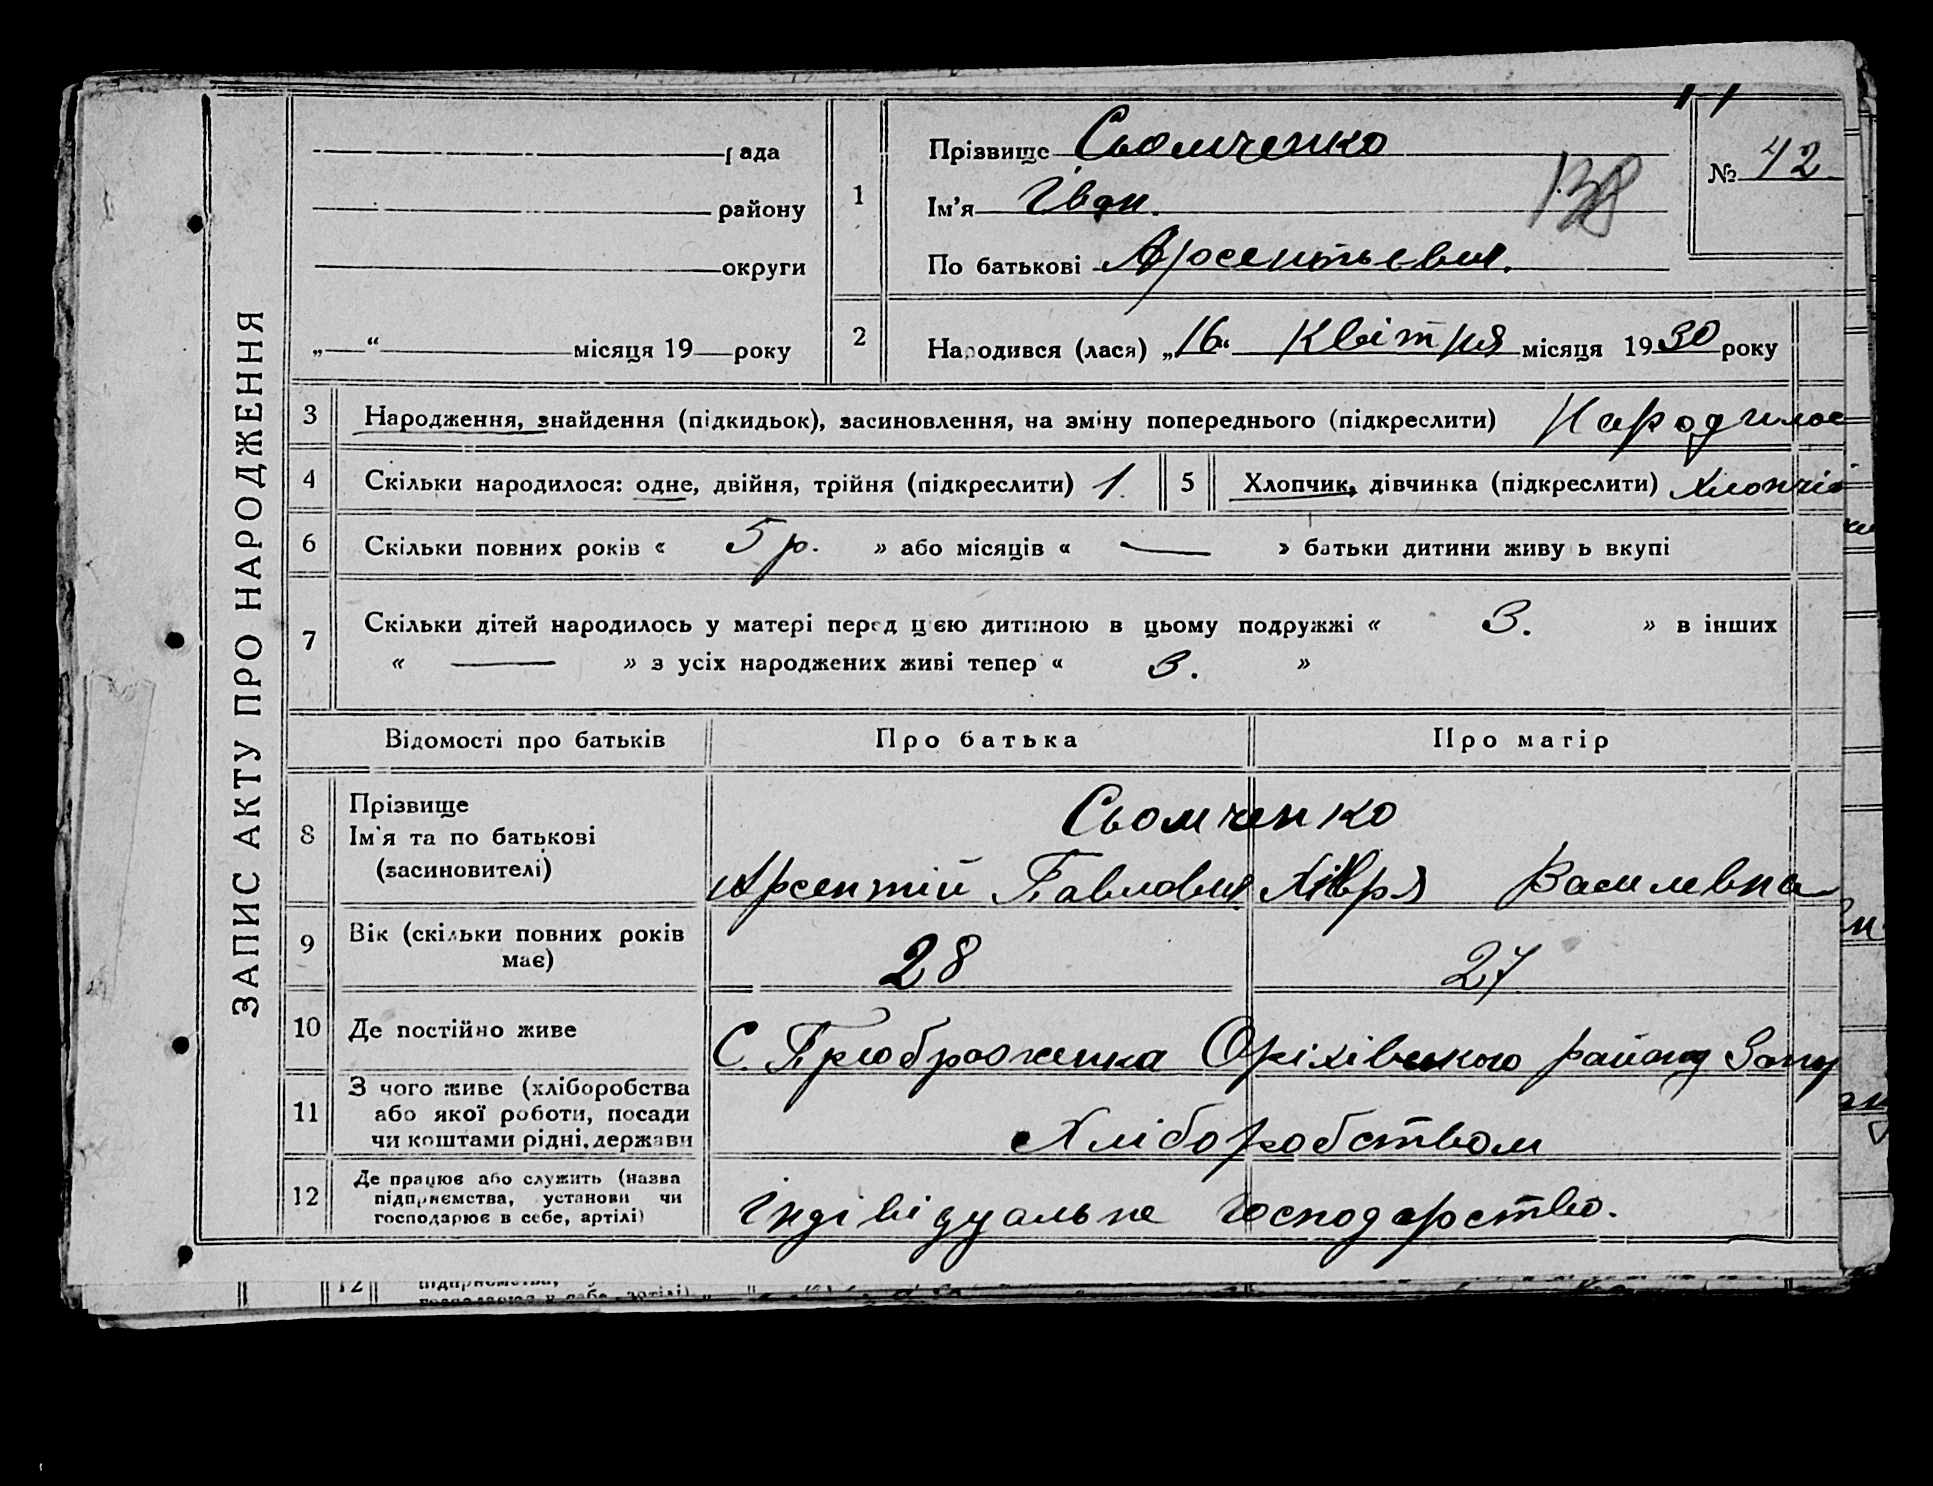 ЗАПИС АКТУ ПРО НАРОДЖЕННЯ
рада
району
округи
„ “ місяця 19 року
1
Прізвище Сьомченко
Ім'я Іван.
138
По батькові Арсентьевич.
№ 42.
2
Народився (лася) „16“ Квітня місяця 1930 року
3 Народження, знайдення (підкидьок), засиновлення, на зміну попереднього (підкреслити) Народилос
4 Скільки народилося: одне, двійня, трійня (підкреслити) 1. 5 Хлопчик, дівчинка (підкреслити) Хлопчік
6 Скільки повних років « 5 р. » або місяців « — » батьки дитини живуть вкупі
7 Скільки дітей народилось у матері перед цією дитиною в цьому подружжі « 3. » в інших
« — » з усіх народжених живі тепер « 3. »
Відомості про батьків Про батька Про матір
8 Прізвище
Ім'я та по батькові
(засиновителі)
Сьомченко
Арсентій Павлович Хівря Василевна
9 Вік (скільки повних років
має)
28 27
10 Де постійно живе С. Преображенка Оріхівського району Запу
11 З чого живе (хліборобства
або якої роботи, посади
чи коштами рідні, держави
Хліборобством
12 Де працює або служить (назва
підприємства, установи чи
господарює в себе, артілі)
індівідуальне господарство.
12